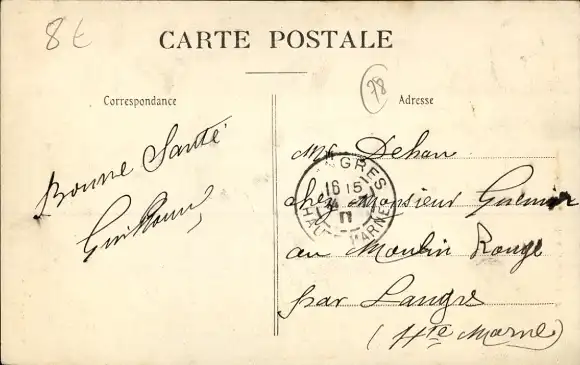 8€
CARTE POSTALE
78
Correspondance
Adresse
Bonne Santé
Mr Dehan
chez Monsieur Guenier
au Moulin Rouge
par Langres
(Hte Marne)
GRES
16 15
11
HAUTE MARNE